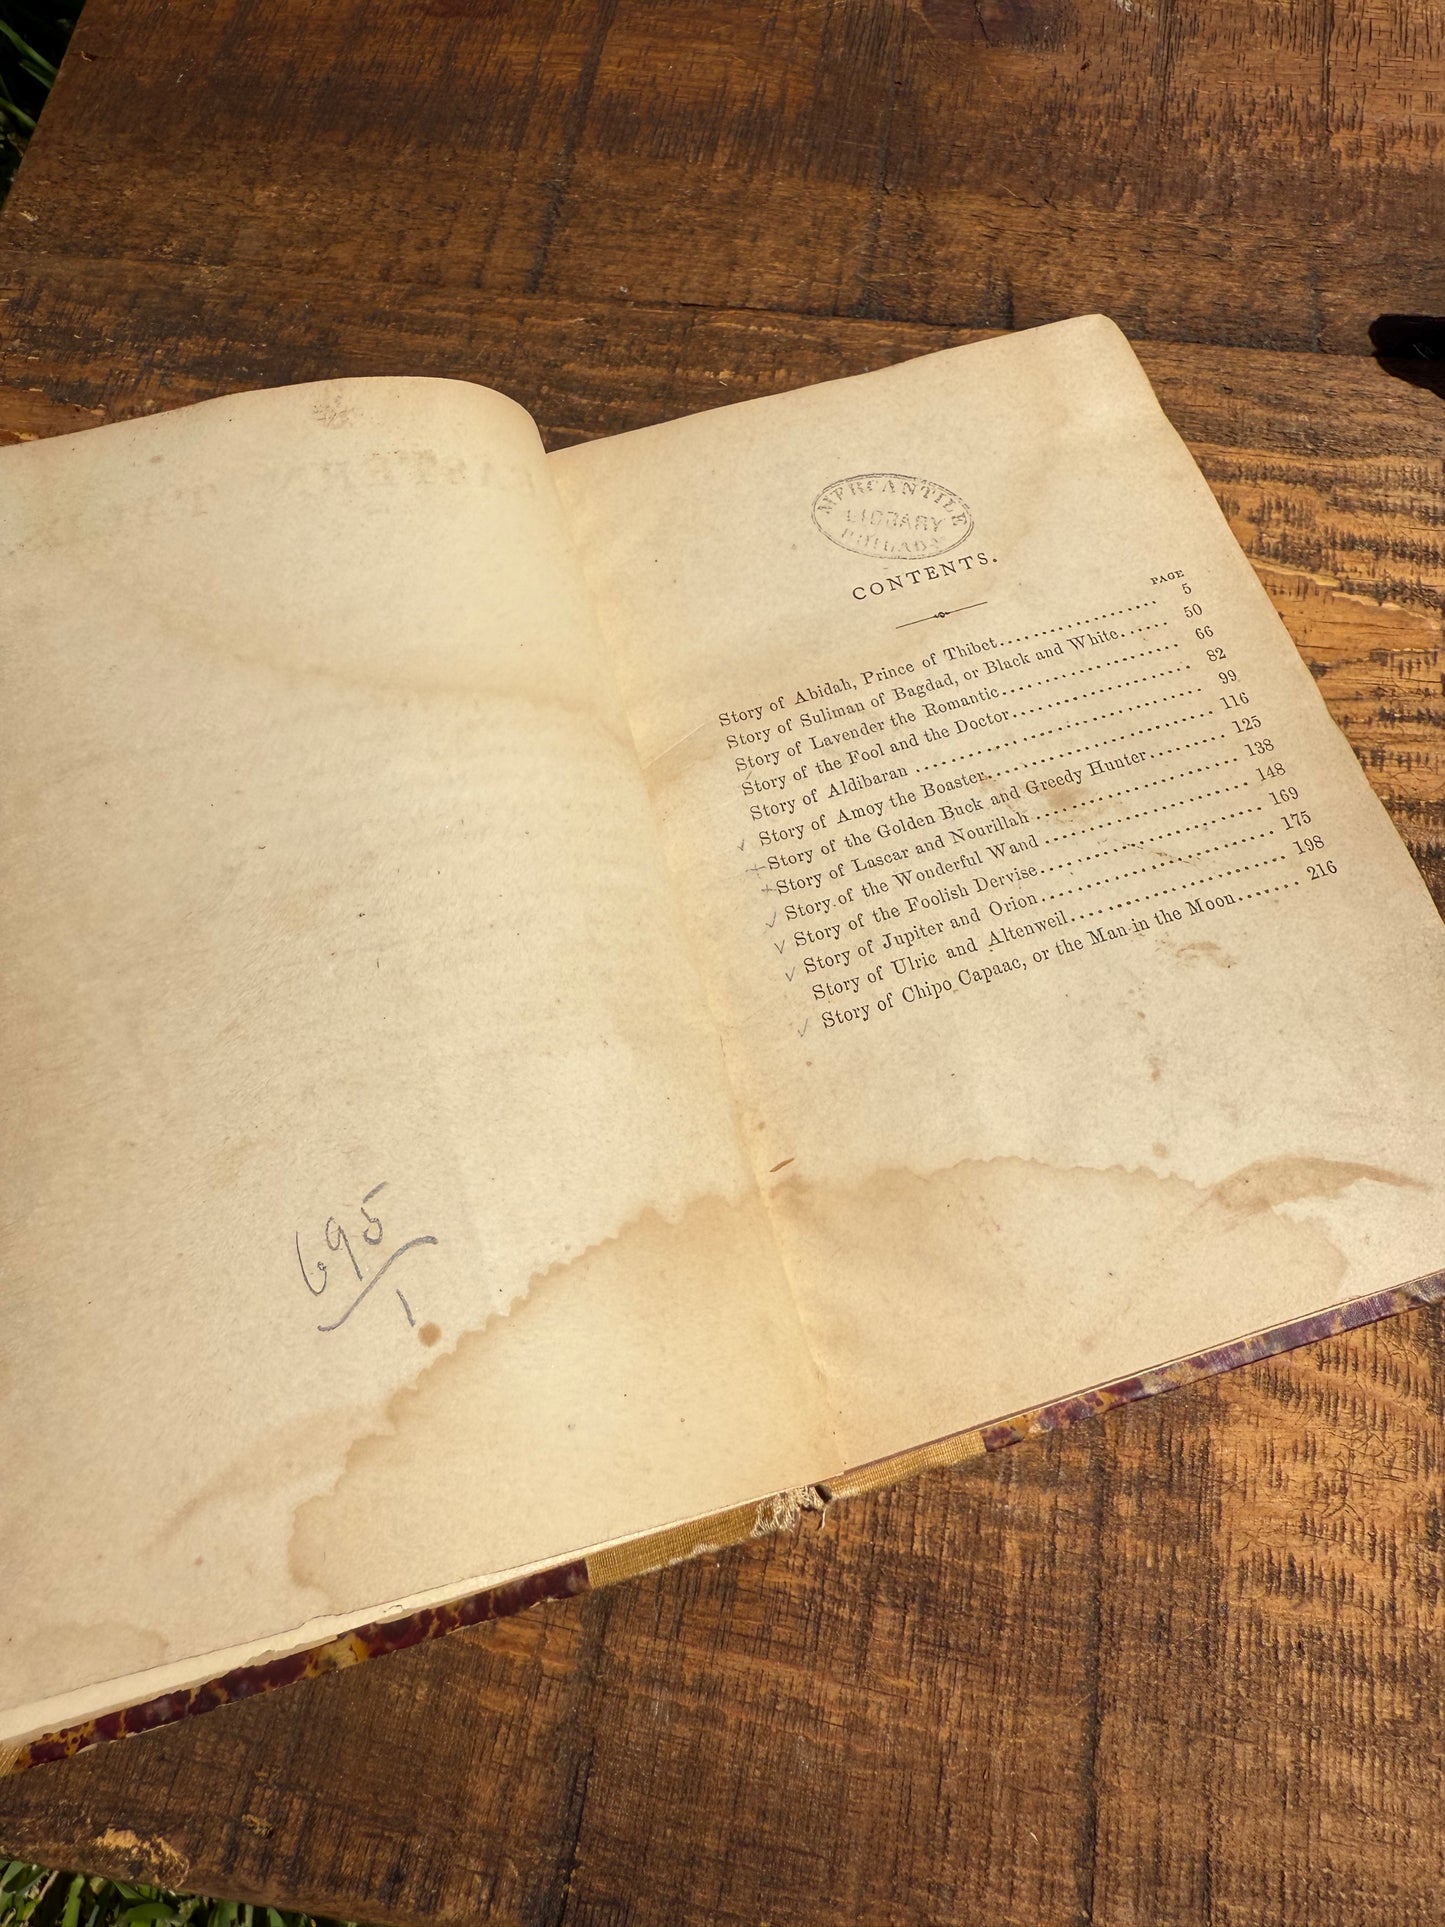 695
1
MERCANTILE
LIBRARY
PHILADA
CONTENTS.
PAGE
Story of Abidah, Prince of Thibet.................... 5
Story of Suliman of Bagdad, or Black and White...... 50
Story of Lavender the Romantic.................... 66
Story of the Fool and the Doctor.................... 82
Story of Aldibaran .............................. 99
Story of Amoy the Boaster......................... 116
Story of the Golden Buck and Greedy Hunter......... 125
Story of Lascar and Nourillah ..................... 138
Story of the Wonderful Wand ..................... 148
Story of the Foolish Dervise....................... 169
Story of Jupiter and Orion........................ 175
Story of Ulric and Altenweil...................... 198
Story of Chipo Capaac, or the Man in the Moon....... 216